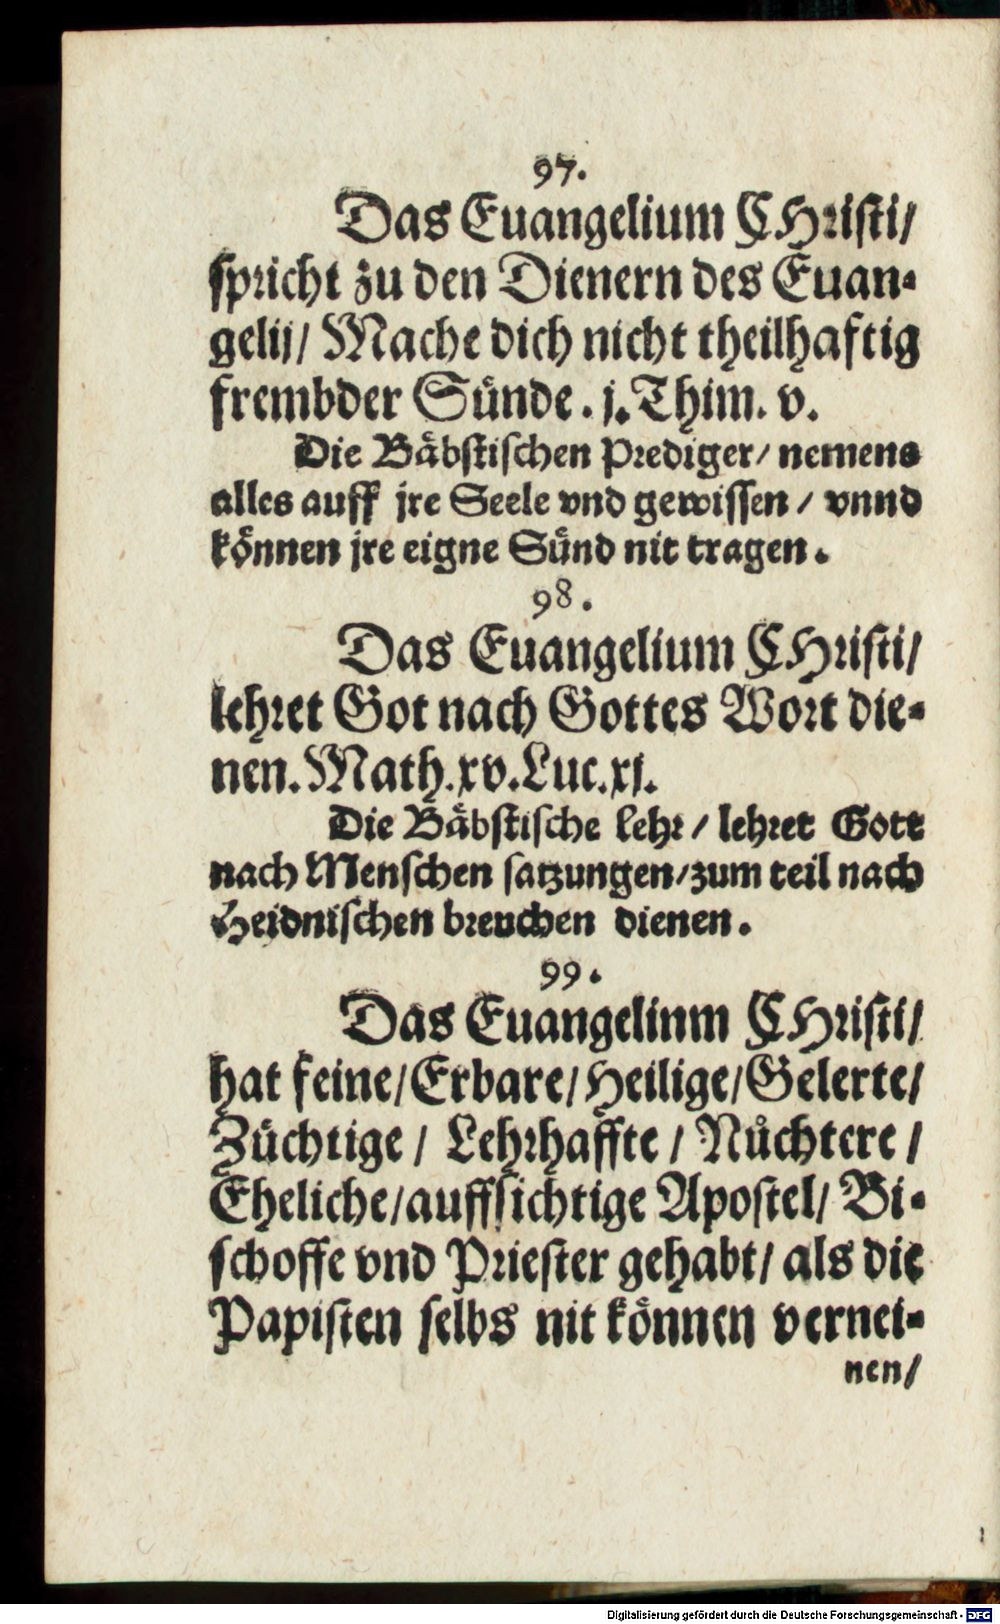 97.
Das Euangelium CHristi/
spricht zu den Dienern des Euan-
gelij/ Mache dich nicht theilhafftig
frembder Sünde. j. Thim. v.
Die Bäbstischen Prediger/ nemens
alles auff jre Seele vnd gewissen / vnnd
können jre eigne Sünd nit tragen.
98.
Das Euangelium CHristi/
lehret Got nach Gottes Wort die-
nen. Math. xv. Luc. xj.
Die Bäbstische lehr / lehret Gott
nach Menschen satzungen/ zum teil nach
Heidnischen breuchen dienen.
99.
Das Euangelinm CHristi/
hat feine/ Erbare/ Heilige/ Gelerte/
Züchtige / Lehrhaffte / Nůchtere /
Eheliche/ auffsichtige Apostel/ Bi-
schoffe vnd Priester gehabt/ als die
Papisten selbs nit können vernei-
nen/
Digitalisierung gefördert durch die Deutsche Forschungsgemeinschaft - DFG